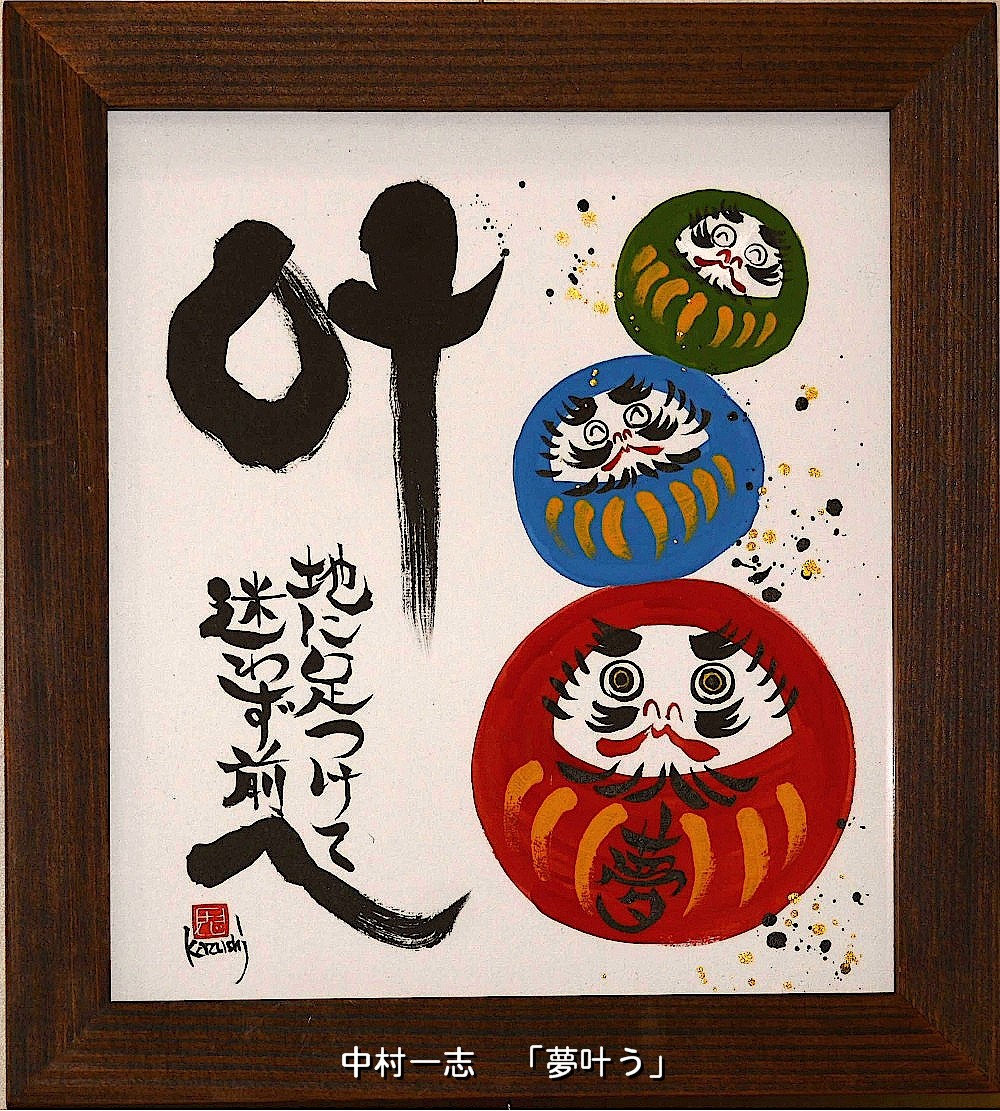 叶
地に足つけて
迷わず前へ
夢
Kazushi
中村一志　「夢叶う」